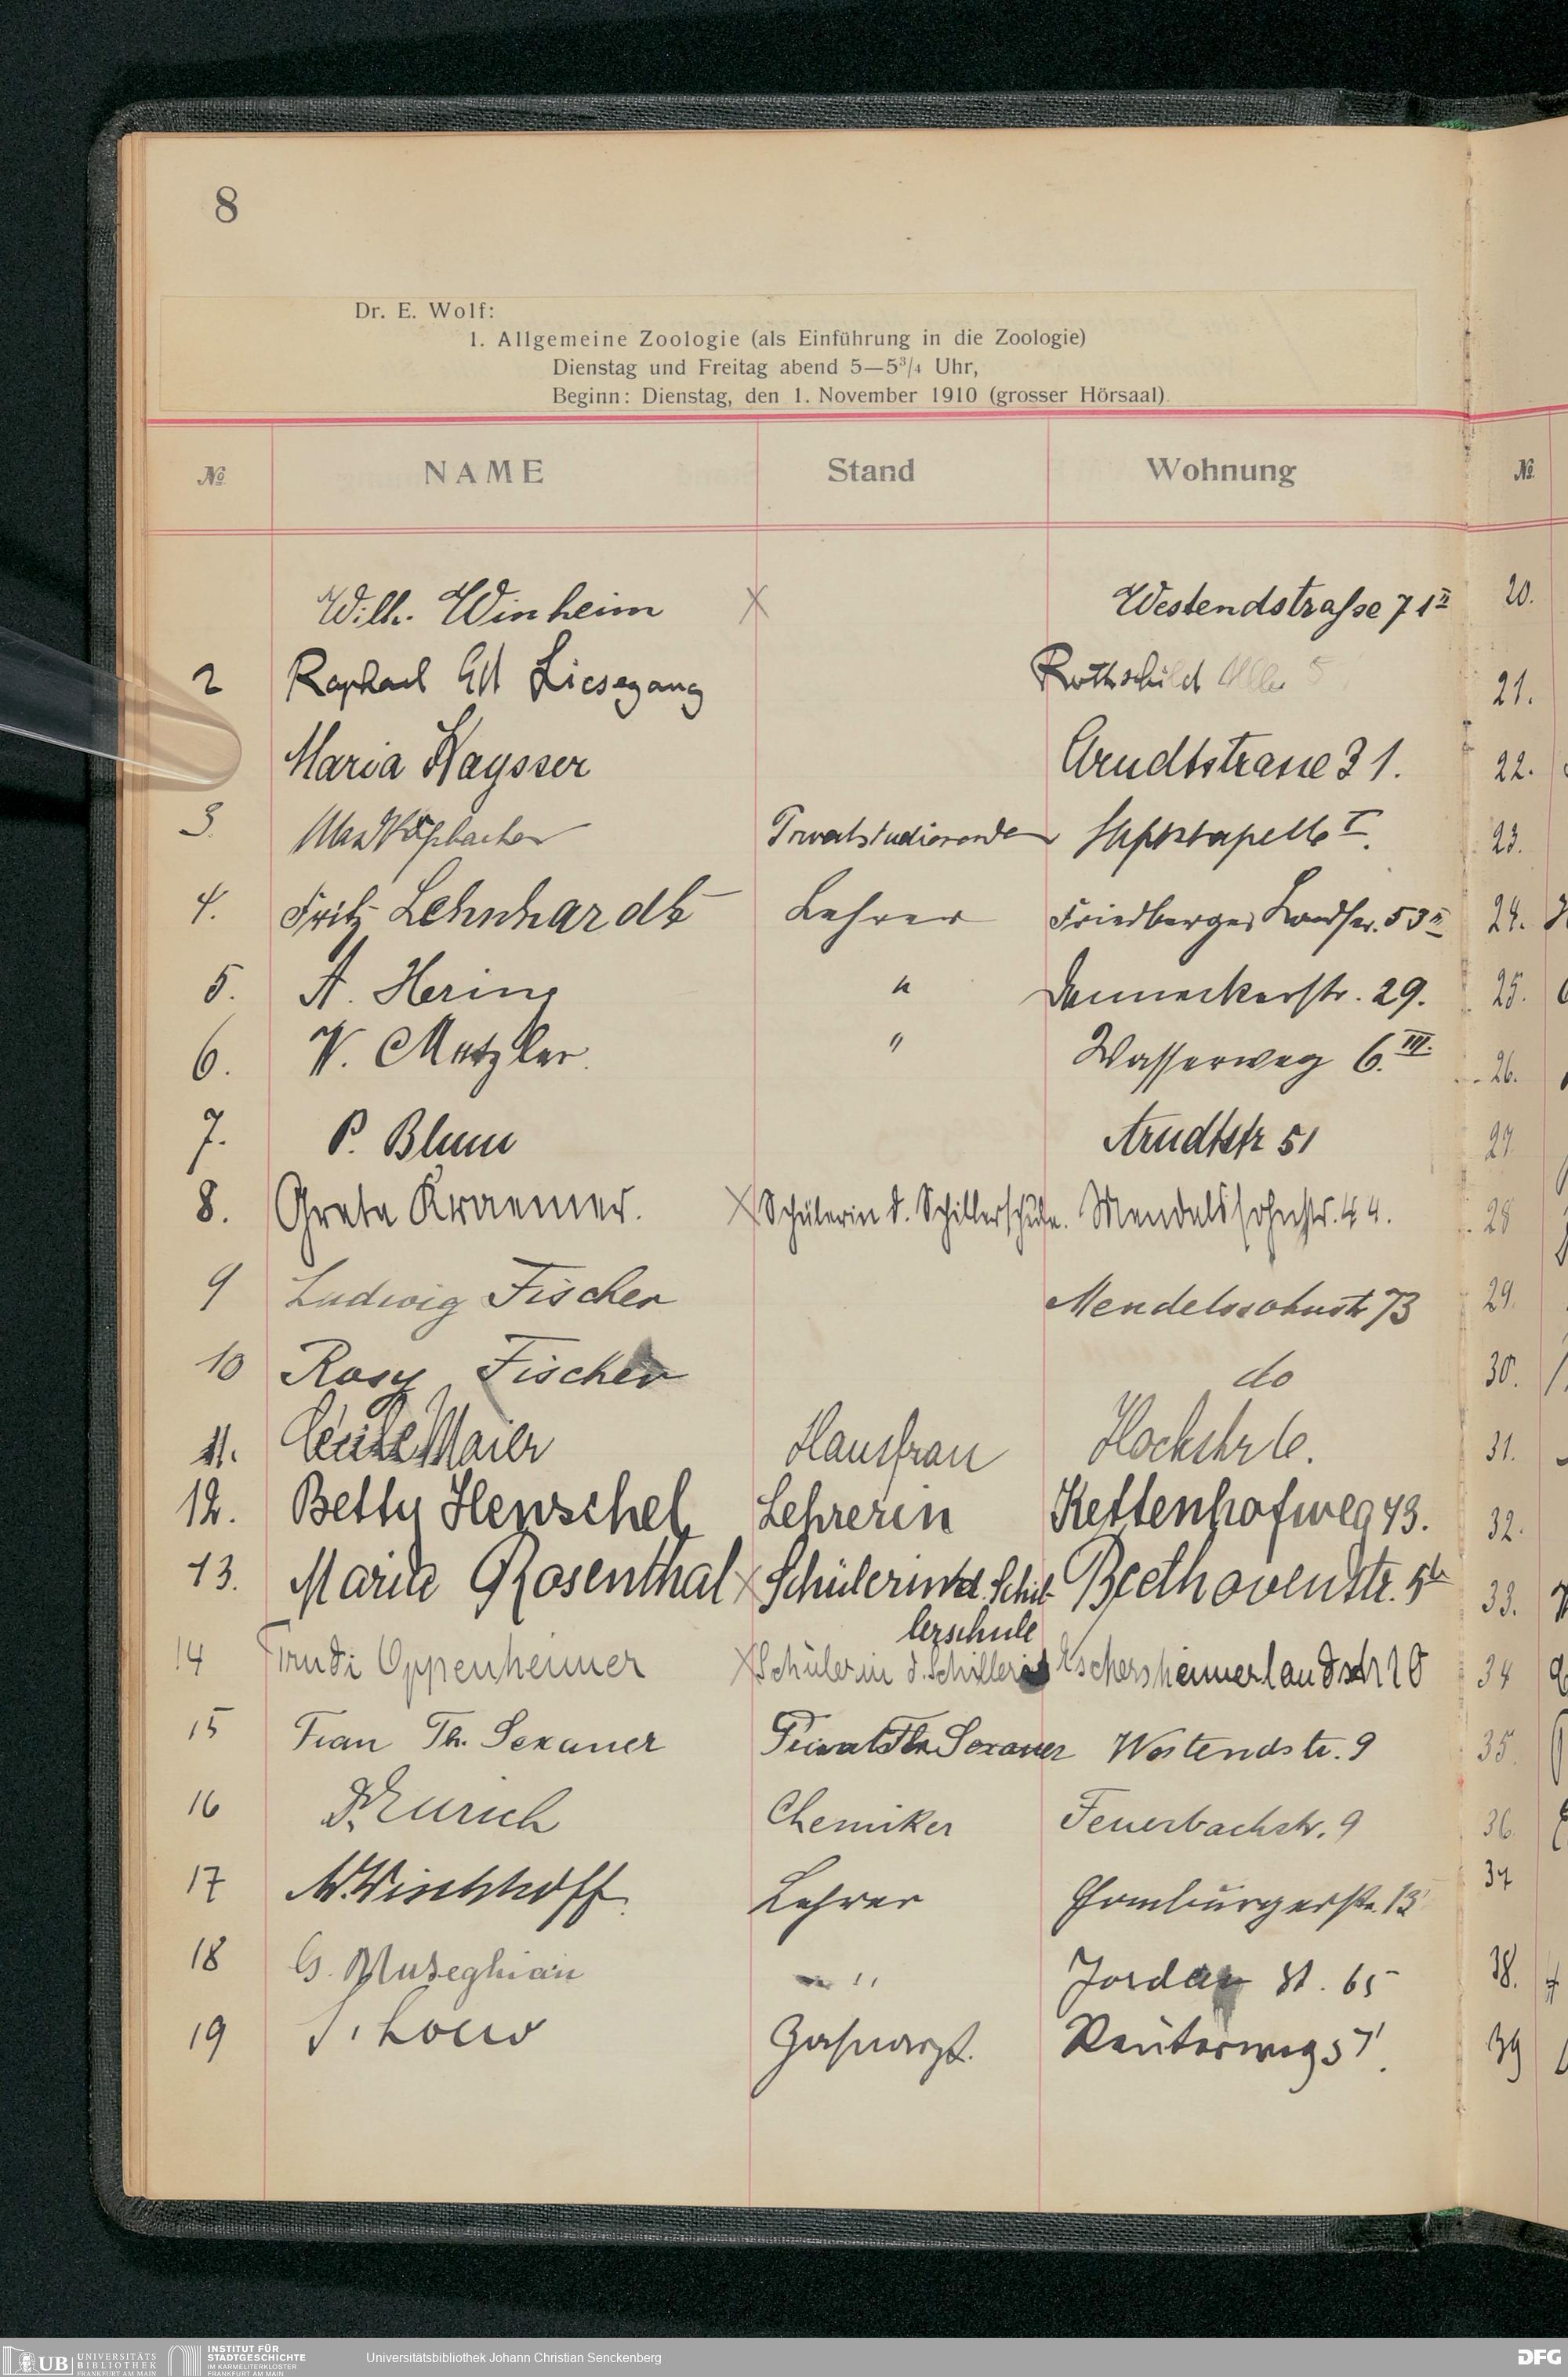 8
Dr. E. Wolf:
1. Allgemeine Zoologie (als Einführung in die Zoologie)
Dienstag und Freitag abend 5—5³/₄ Uhr,
Beginn: Dienstag, den 1. November 1910 (grosser Hörsaal).
№ NAME Stand Wohnung №
Wilh. Winheim X Westendstraße 71 II 20.
2 Raphael Ed Liesegang Rothschild Allee 5 21.
Maria Kaysser Arndtstrasse 31. 22.
3. Privatstudierender I. 23.
4. Fritz Lehnhardt Lehrer Friedberger Landstr. 53 II 24.
5. A. Hering " Danneckerstr. 29. 25.
6. V. Metzler " Wasserweg 6. III. 26.
7. P. Blum Arndtstr 51 27
8. Greta Kraemer. X Schülerin d. Schillerschule. Mendelssohnstr. 44. 28
9 Ludwig Fischer Mendelssohnstr 73 29.
10 Rosy Fischer do 30.
11. Cécile Maier Hausfrau Hochstr 6. 31.
12. Betty Henschel Lehrerin Kettenhofweg 43. 32.
13. Marie Rosenthal X Schülerin d. Schil- Beethovenstr. 5b 33.
lerschule
14 Trudi Oppenheimer X Schülerin d. Schiller Eschersheimerlandstr 10 34
15 Frau Th. Sexauer Privat Th. Sexauer Westendstr. 9 35.
16 Dr. Eurich Chemiker Feuerbachstr. 9 36.
17 W. Wischhoff. Lehrer Homburgerstr. 13 37
18 G. Museghian " Jordan St. 65 38.
19 S. Loew Zahnarzt. Reuterweg 57. 39
UB UNIVERSITÄTS
BIBLIOTHEK
FRANKFURT AM MAIN
INSTITUT FÜR
STADTGESCHICHTE
IM KARMELITERKLOSTER
FRANKFURT AM MAIN
Universitätsbibliothek Johann Christian Senckenberg
DFG